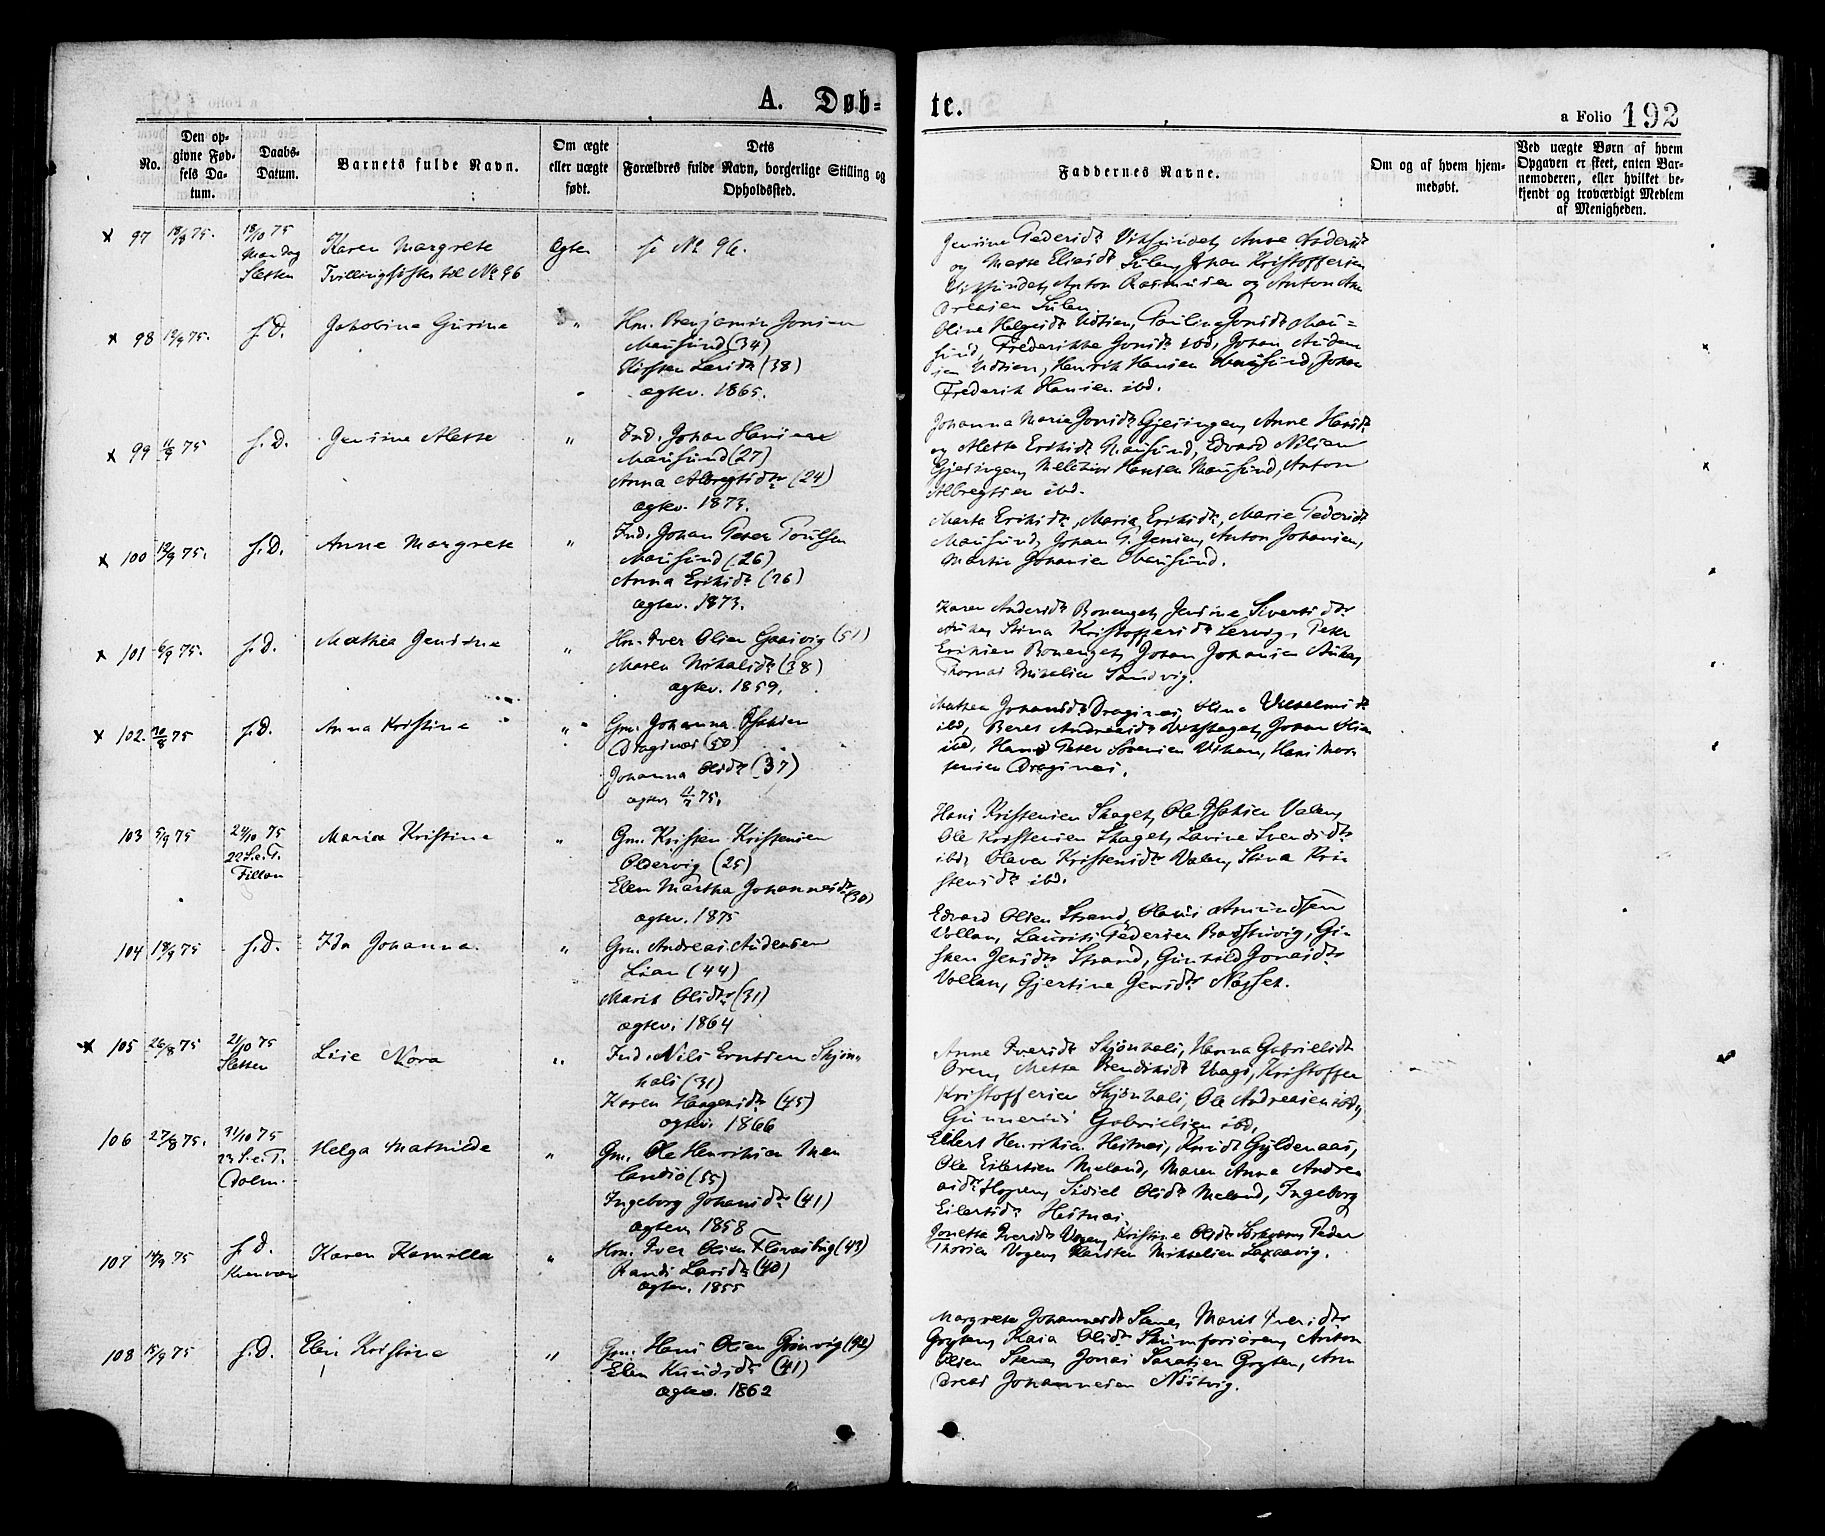 A. Døb-
te.
a Folio 192
No.
Den op-
givne Fød-
sels Da-
tum.
Daabs-
Datum.
Barnets fulde Navn.
Om ægte
eller uægte
født.
Dets
Forældres fulde Navn, borgerlige Stilling og
Opholdssted.
Faddernes Navne.
Om og af hvem hjem-
medøbt.
Ved uægte Børn af hvem
Opgaven er skeet, enten Bar-
nemoderen, eller hvilket be-
kjendt og troværdigt Medlem
af Menigheden.
97 18/8 75.
18/10 75
Mandag
Sletten
Karen Margrete
Tvillingsøster til No 96
ægte
se No 96.
og Mette Eliasdr Sulen, Johan Kristoffersen
Anton Rasmusen og Anton An
dreasen Sulen
98 12/9 75. s. D. Jakobina Gurina "
Hm. Benjamin Jonsen
Mausund (34)
Kirsten Larsdr (38)
ægtev. 1865.
Oline Helgesdr Udsien, Paulina Jonsdr Mau=
sund, Frederikke Jonsdr ibd, Johan Anden
sen Udsien, Henrik Hansen Mausund, Johan
Frederik Hansen ibd.
99 11/9 75 s. D. Jensine Mette "
Ind. Johan Hansen
Mausund (27)
Anna Albregtsdr (24)
ægtev. 1873.
Johanna Maria Jonsdr Gjesingen, Anne Hansdr
og Mette Eriksdr Mausund, Edvard Nilsen
Gjesingen, Melchior Hansen Mausund, Anton
Albregtsen ibd.
100 12/9 75. s. D. Anne Margrete "
Ind. Johan Peter Poulsen
Mausund (26)
Anna Eriksdr (26)
ægtev. 1873.
Marta Eriksdr, Maria Eriksdr, Marie Pedersdr
Mausund, Johan P. Jensen, Anton Johansen,
Martin Johansen Mausund.
101 6/9 75. s. D. Mathea Jensine "
Hm. Iver Olsen Gaasvig (51)
Maren Mikalsdr (38)
ægtev. 1859.
Karen Andersdr Bonenget, Jensine Sivertsdr
Stina Kristoffersdr Lervig, Peter
Eriksen Bonenget, Johan Johansen
Thomas Mikelsen Sandvig.
102. 30/8 75 s. D. Anna Kristine "
Gm. Johanna Isaksen
Draginæs (50)
Johanna Olsdr (37)
ægtev 75.
Mathea Johansdr Draginæs, Stina Vilhelmsdr
ibd, Beret Andreasdr Johan Olsen
ibd, Hans Peter Sørensen Hans Mor
tensen Draginæs.
103 5/9 75
24/10 75
22 S. e. T.
Fillan
Maria Kristine "
Gm. Kristen Kristensen
Oldervig (25)
Elen Martha Johannesdr (30)
ægtev. 1875
Hans Kristensen Skaget, Ole Isaksen Valen,
Ole Kristensen Skaget, Lavine Svendsdr
ibd, Olava Kristensdr Valen, Stina Kri
stensdr ibd.
104 19/9 75 s. D. Ida Johanna. "
Gm. Andreas Andersen
Lian (44)
Marit Olsdr (31)
ægtev. 1864
Edvard Olsen Strand, Olaus Amundsen
Vollan, Laurits Pedersen Badstuvig, Gi-
sken Jensdr Strand, Gunhild Jonasdr
Vollan, Gjertine Jensdr Næsset.
105 26/8 75
21/10 75
Sletten
Lise Nora "
Ind. Nils Erntsen Skjøn-
hals (31)
Karen Haagensdr (45)
ægtev. 1866
Anne Iversdr Skjønhals, Hanna Gabrielsdr
Øren, Metta Bendiksdr Vaagø, Kristoffer
Kristoffersen Skjønhals, Ole Andreasen ibd,
Gunnerius Gabrielsen ibd.
106 27/8 75.
31/10 75
23 S. e. T.
Dolm.
Helga Mathilde "
Gm. Ole Henriksen Mee
landsø (55)
Ingeborg Johansdr (41)
ægtev 1858
Eilert Henriksen Hestnæs, Knud Gyldenaas,
Ole Eilertsen Meland, Maren Anna Andrea
asdr Hopen, Sidsel Olsdr Meland, Ingeborg
Eilertsdr Hestnæs.
107 14/9 75
s. D.
Kvenvær
Karen Kamilla "
Hm. Iver Olsen (43)
Randi Larsdr (40)
ægtev. 1855
Jonetta Iversdr Vogen, Kristine Olsdr Peder
Thorsen Vogen, Karsten Mikkelsen Laxaavig.
108 15/9 75 s. D. Elen Kristine "
Gm. Hans Olsen Grønvig (42)
Elen Knudsdr (41)
ægtev. 1862
Margrete Johannesdr Stene, Marit Iversdr
Gryten, Kaia Olsdr Skumfossøren, Anton
Olsen Stene, Jonas Gryten, An
dreas Johannesen Nøstvig.